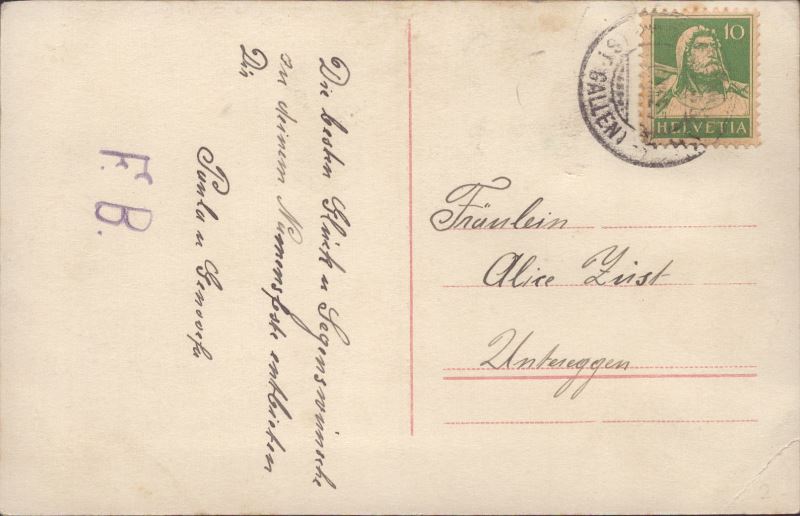 Die besten Glück u Segenswünsche
zu deinem Namensfeste entbieten
Dir
Paula u Genovefa
F. B.
10
HELVETIA
ST. GALLEN 1
Fräulein
Alice Züst
Untereggen
2